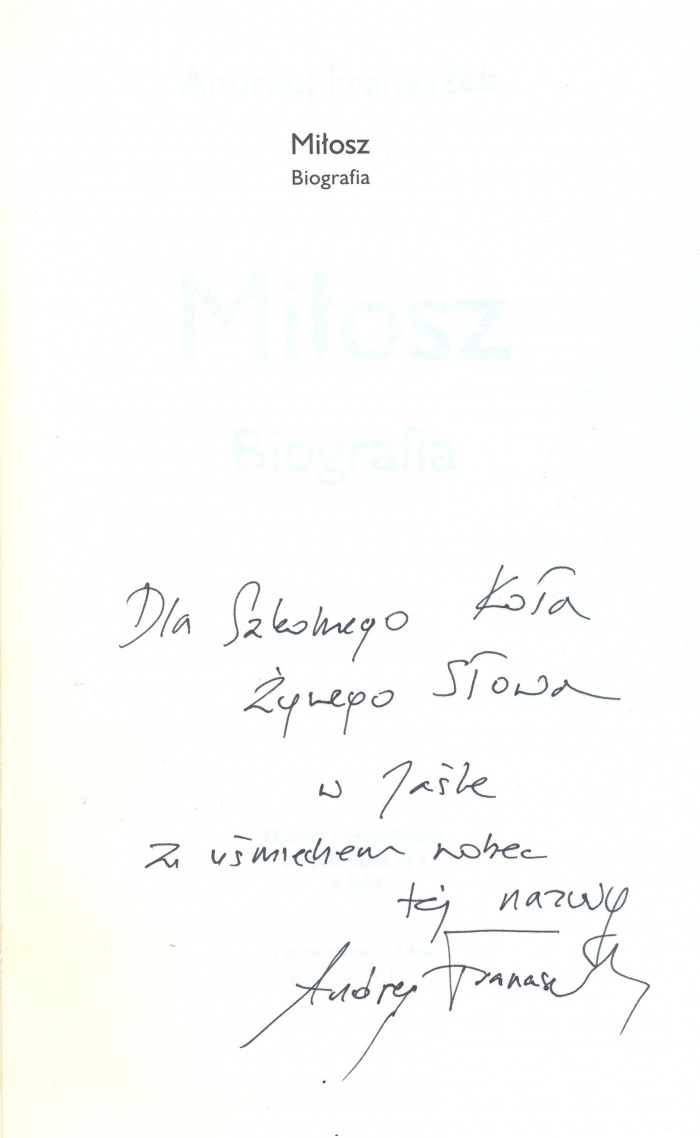 Andrzej Franaszek
Miłosz
Biografia
Miłosz
Biografia
Dla Szkolnego Koła
Żywego Słowa
w Jaśle
z uśmiechem wobec
tej nazwy
Andrzej Franaszek